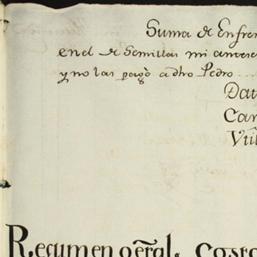 Suma de Enfren
en el de Semillas mi anteces
y no las pagò a dho Pedro
Dat
Car
Vtil
Regimen gēral. Costa